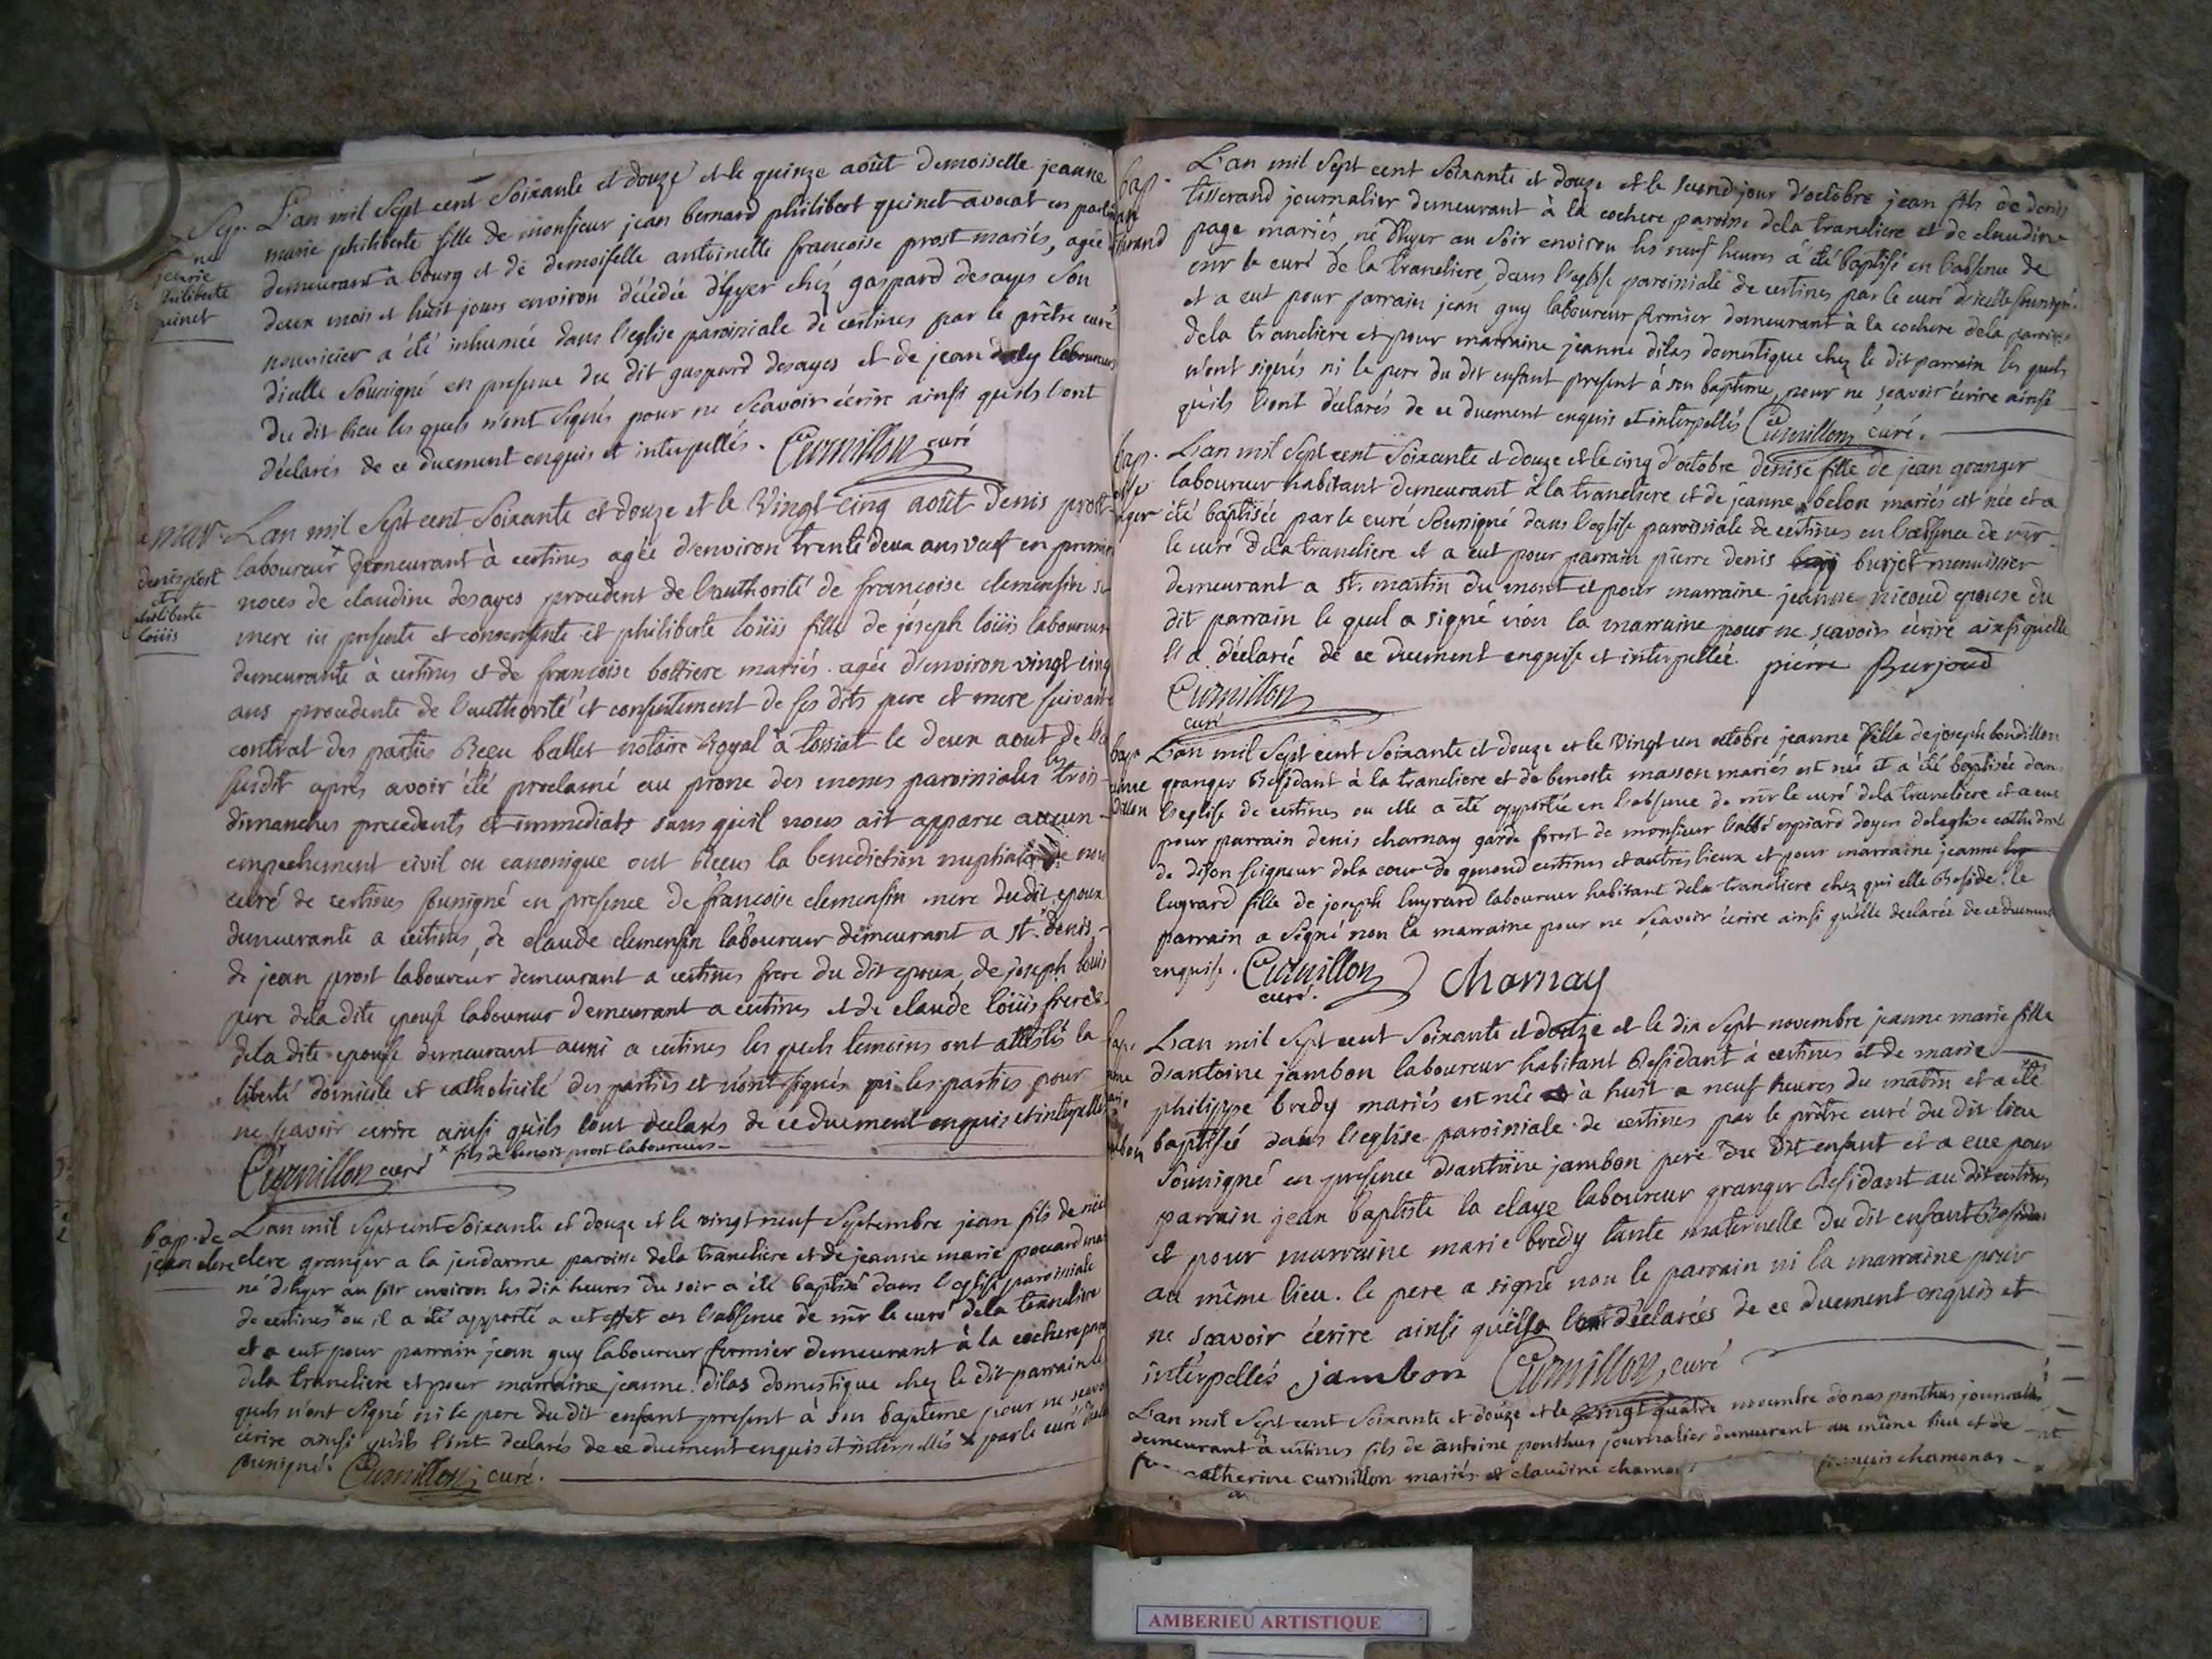 Sep. L'an mil Sept cent Soixante et douze et le quinze août demoiselle jeanne
marie philiberte fille de monsieur jean bernard philibert quinet avocat en
jeanne
philiberte
quinet
demeurant à bourg et de demoiselle antoinette francoise prost mariés, agée
deux mois et huit jours environ décédée d'hyer chéz gaspard desayes son
nourricier a été inhumée dans l'eglise paroissiale de certines par le prêtre curé
d'icelle Sousigné en presence du dit gaspard desayes et de jean laboureurs
du dit lieu les quels n'ont signés pour ne sçavoir écrire ainsi qu'ils l'ont
déclarés de ce duement enquis et interpellés. Curnillon curé
mar. L'an mil Sept cent Soixante et douze et le Vingt cinq août denis prost
denis prost
et
philiberte
loüis
laboureur * demeurant à certines agée d'environ trente deux ans veuf en premier
noces de claudine desayes procedent de l'authorité de francoise clemensin
mere ici presente et consentente et philiberte loüis fille de joseph loüis laboureur
demeurante à certines et de francoise mariés agée d'environ vingt cinq
ans procedente de l'authorité et consentement de ses dits pere et mere suivant
contrat des parties Recu ballet notaire Royal à tossiat le deux aout de
susdit après avoir été proclamé au prone des messes paroissiales les trois
dimanches precedents et immediats sans qu'il nous ait apparu aucun
empechement civil ou canonique ont Récus la benediction nuptiale de nou
curé de certines sousigné en presence de francoise clemensin mere du dit epoux
demeurante a certines, de claude clemensin laboureur demeurant a st. denis,
de jean prost laboureur demeurant a certines frere du dit epoux, de joseph loüis
pere dela dite epouse laboureur demeurant a certines et de claude loüis frere
dela dite epouse demeurant aussi a certines les quels temoins ont attestés la
liberté domicile et catholicité des parties et n'ont signés ni les parties pour
ne sçavoir écrire ainsi qu'ils l'ont declarés de ce duement enquis et interpellés
Curnillon curé * fils de benoit prost laboureur
bap. de L'an mil Sept cent Soixante et douze et le vingt neuf Septembre jean fils de
jean clere clere granger a la jendarme paroisse dela tranclière et de jeanne marie pouard
né d'hyer au soir environ les dix heures du soir a été baptisé dans l'eglise paroissiale
de certines * ou il a été apporté a cet effet en l'absence de mr le curé dela tranclière
et a eut pour parrain jean guy laboureur fermier demeurant à la cochere
dela tranclière et pour marraine jeanne dilas domestique chez le dit parrain le
quels n'ont signé ni le pere du dit enfant present à son baptême pour ne scavoir
écrire ainsi qu'ils l'ont declarés de ce duement enquis et interpellés * par le curé
sousigné. Curnillon, curé.
bap. L'an mil Sept cent Soixante et douze et le second jour d'octobre jean fils de denis
tisserand journalier demeurant à la cochere paroisse dela trancliere et de claudine
page mariés, né d'hyer au soir environ les neuf heures à été baptisé en l'absence de
mr le curé de la trancliere, dans l'eglise paroissiale de certines par le curé d'icelle sousigné.
et a eut pour parrain jean guy laboureur fermier demeurant à la cochere dela paroisse
dela trancliere et pour marraine jeanne dilas domestique chez le dit parrain les quels
n'ont signés ni le pere du dit enfant present à son baptême, pour ne sçavoir écrire ainsi
qu'ils l'ont déclarés de ce duement enquis et interpellés Curnillon, curé.
bap. L'an mil Sept cent Soixante et douze et le cinq d'octobre denise fille de jean granger
laboureur habitant demeurant à la trancliere et de jeanne belon mariés est née et a
été baptisée par le curé Sousigné dans l'eglise paroissiale de certines en l'absence de mr
le curé dela trancliere et a eut pour parrain pierre denis burjot menuisier
demeurant a st. martin du mont et pour marraine jeanne nicoud epouse du
dit parrain le quel a signé nón la marraine pour ne scavoir écrire ainsi quelle
l'a déclarée de ce duement enquise et interpellée. pierre Burjoud
Curnillon
curé
bap. L'an mil Sept cent Soixante et douze et le Vingt un octobre jeanne fille de joseph boudillon
granger Residant à la trancliere et de benoite masson mariés est née et a été baptisée dans
l'eglise de certines ou elle a été apportée en l'absence de mr le curé dela trancliere et a eue
pour parrain denis charnay garde forest de monsieur l'abbé espiard doyen deleglise cathedrale
de dijon seigneur dela cour de genoud certines et autres lieux et pour marraine jeanne
lugrard fille de joseph lugrard laboureur habitant dela trancliere chez qui elle Reside. le
parrain a signé non la marraine pour ne sçavoir écrire ainsi qu'elle declarée de ce duement
enquise. Curnillon charnay
curé.
L'an mil Sept cent Soixante et douze et le dix Sept novembre jeanne marie fille
d'antoine jambon laboureur habitant Residant à certines et de marie
philippe bredy mariés est née à huit a neuf heures du matin et a été
baptisée dans l'eglise paroissiale de certines par le prêtre curé du dit lieu
sousigné en presence d'antoine jambon pere du dit enfant et a eue pour
parrain jean baptiste la claye laboureur granger Residant au dit certines
et pour marraine marie bredy tante maternelle du dit enfant Residant
au même lieu. le pere a signé non le parrain ni la marraine pour
ne sçavoir écrire ainsi déclarées de ce duement enquis et
interpellés jambon Curnillon, curé
L'an mil Sept cent Soixante et douze et le vingt quatre novembre donas ponthus journalier
demeurant à certines fils de antoine ponthus journalier demeurant au même lieu et de
catherine curnillon mariés et claudine françois chamonar
AMBERIEU ARTISTIQUE